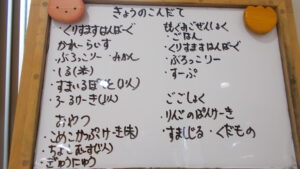 きょうのこんだて
・くりすますはんばーぐ
かれーらいす
・ぶろっこりー・みかん
・すまいるぽてと(1人)
・ろーるけーき(1人)
おやつ
・こめこかっぷけーき
・ちょこ
・ぎゅうにゅう
もぐもぐごぜんしょく
・ごはん
・くりすますはんばーぐ
・ぶろっこりー
・すーぷ
ごごしょく
・りんごのぱんけーき
・すましじる・くだもの